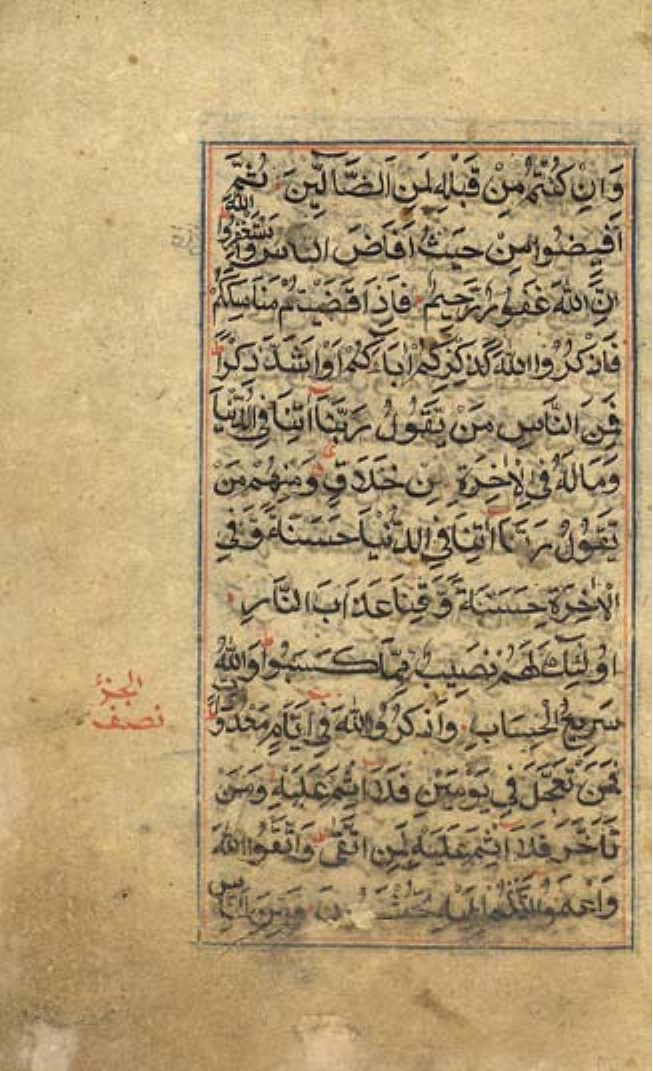 وَاِنْ كُنْتُمْ مِنْ قَبْلِهِ لَمِنَ الضَّالِّينَ ثُمَّ
اَفِيضُوا مِنْ حَيْثُ اَفَاضَ النَّاسُ وَاسْتَغْفِرُوا اللّٰهَ
اِنَّ اللّٰهَ غَفُورٌ رَحِيمٌ فَاِذَا قَضَيْتُمْ مَنَاسِكَكُمْ
فَاذْكُرُوا اللّٰهَ كَذِكْرِكُمْ اٰبَاءَكُمْ اَوْ اَشَدَّ ذِكْرًا
فَمِنَ النَّاسِ مَنْ يَقُولُ رَبَّنَا اٰتِنَا فِي الدُّنْيَا
وَمَا لَهُ فِي الْاٰخِرَةِ مِنْ خَلَاقٍ وَمِنْهُمْ مَنْ
يَقُولُ رَبَّنَا اٰتِنَا فِي الدُّنْيَا حَسَنَةً وَفِي
الْاٰخِرَةِ حَسَنَةً وَقِنَا عَذَابَ النَّارِ
اُولٰئِكَ لَهُمْ نَصِيبٌ مِمَّا كَسَبُوا وَاللّٰهُ
سَرِيعُ الْحِسَابِ وَاذْكُرُوا اللّٰهَ فِي اَيَّامٍ مَعْدُودَاتٍ
فَمَنْ تَعَجَّلَ فِي يَوْمَيْنِ فَلَا اِثْمَ عَلَيْهِ وَمَنْ
تَاَخَّرَ فَلَا اِثْمَ عَلَيْهِ لِمَنِ اتَّقٰى وَاتَّقُوا اللّٰهَ
وَاعْلَمُوا اَنَّكُمْ اِلَيْهِ تُحْشَرُونَ وَمِنَ النَّاسِ
الجزء
نصف